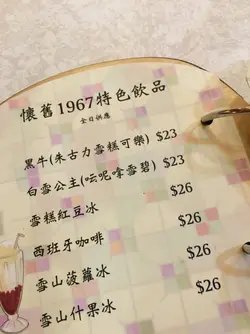 懷舊1967特色飲品
全日供應
黑牛(朱古力雪糕可樂) $23
白雪公主(云呢拿雪碧) $23
雪糕紅豆冰 $26
西班牙咖啡 $26
雪山菠蘿冰 $26
雪山什果冰 $26